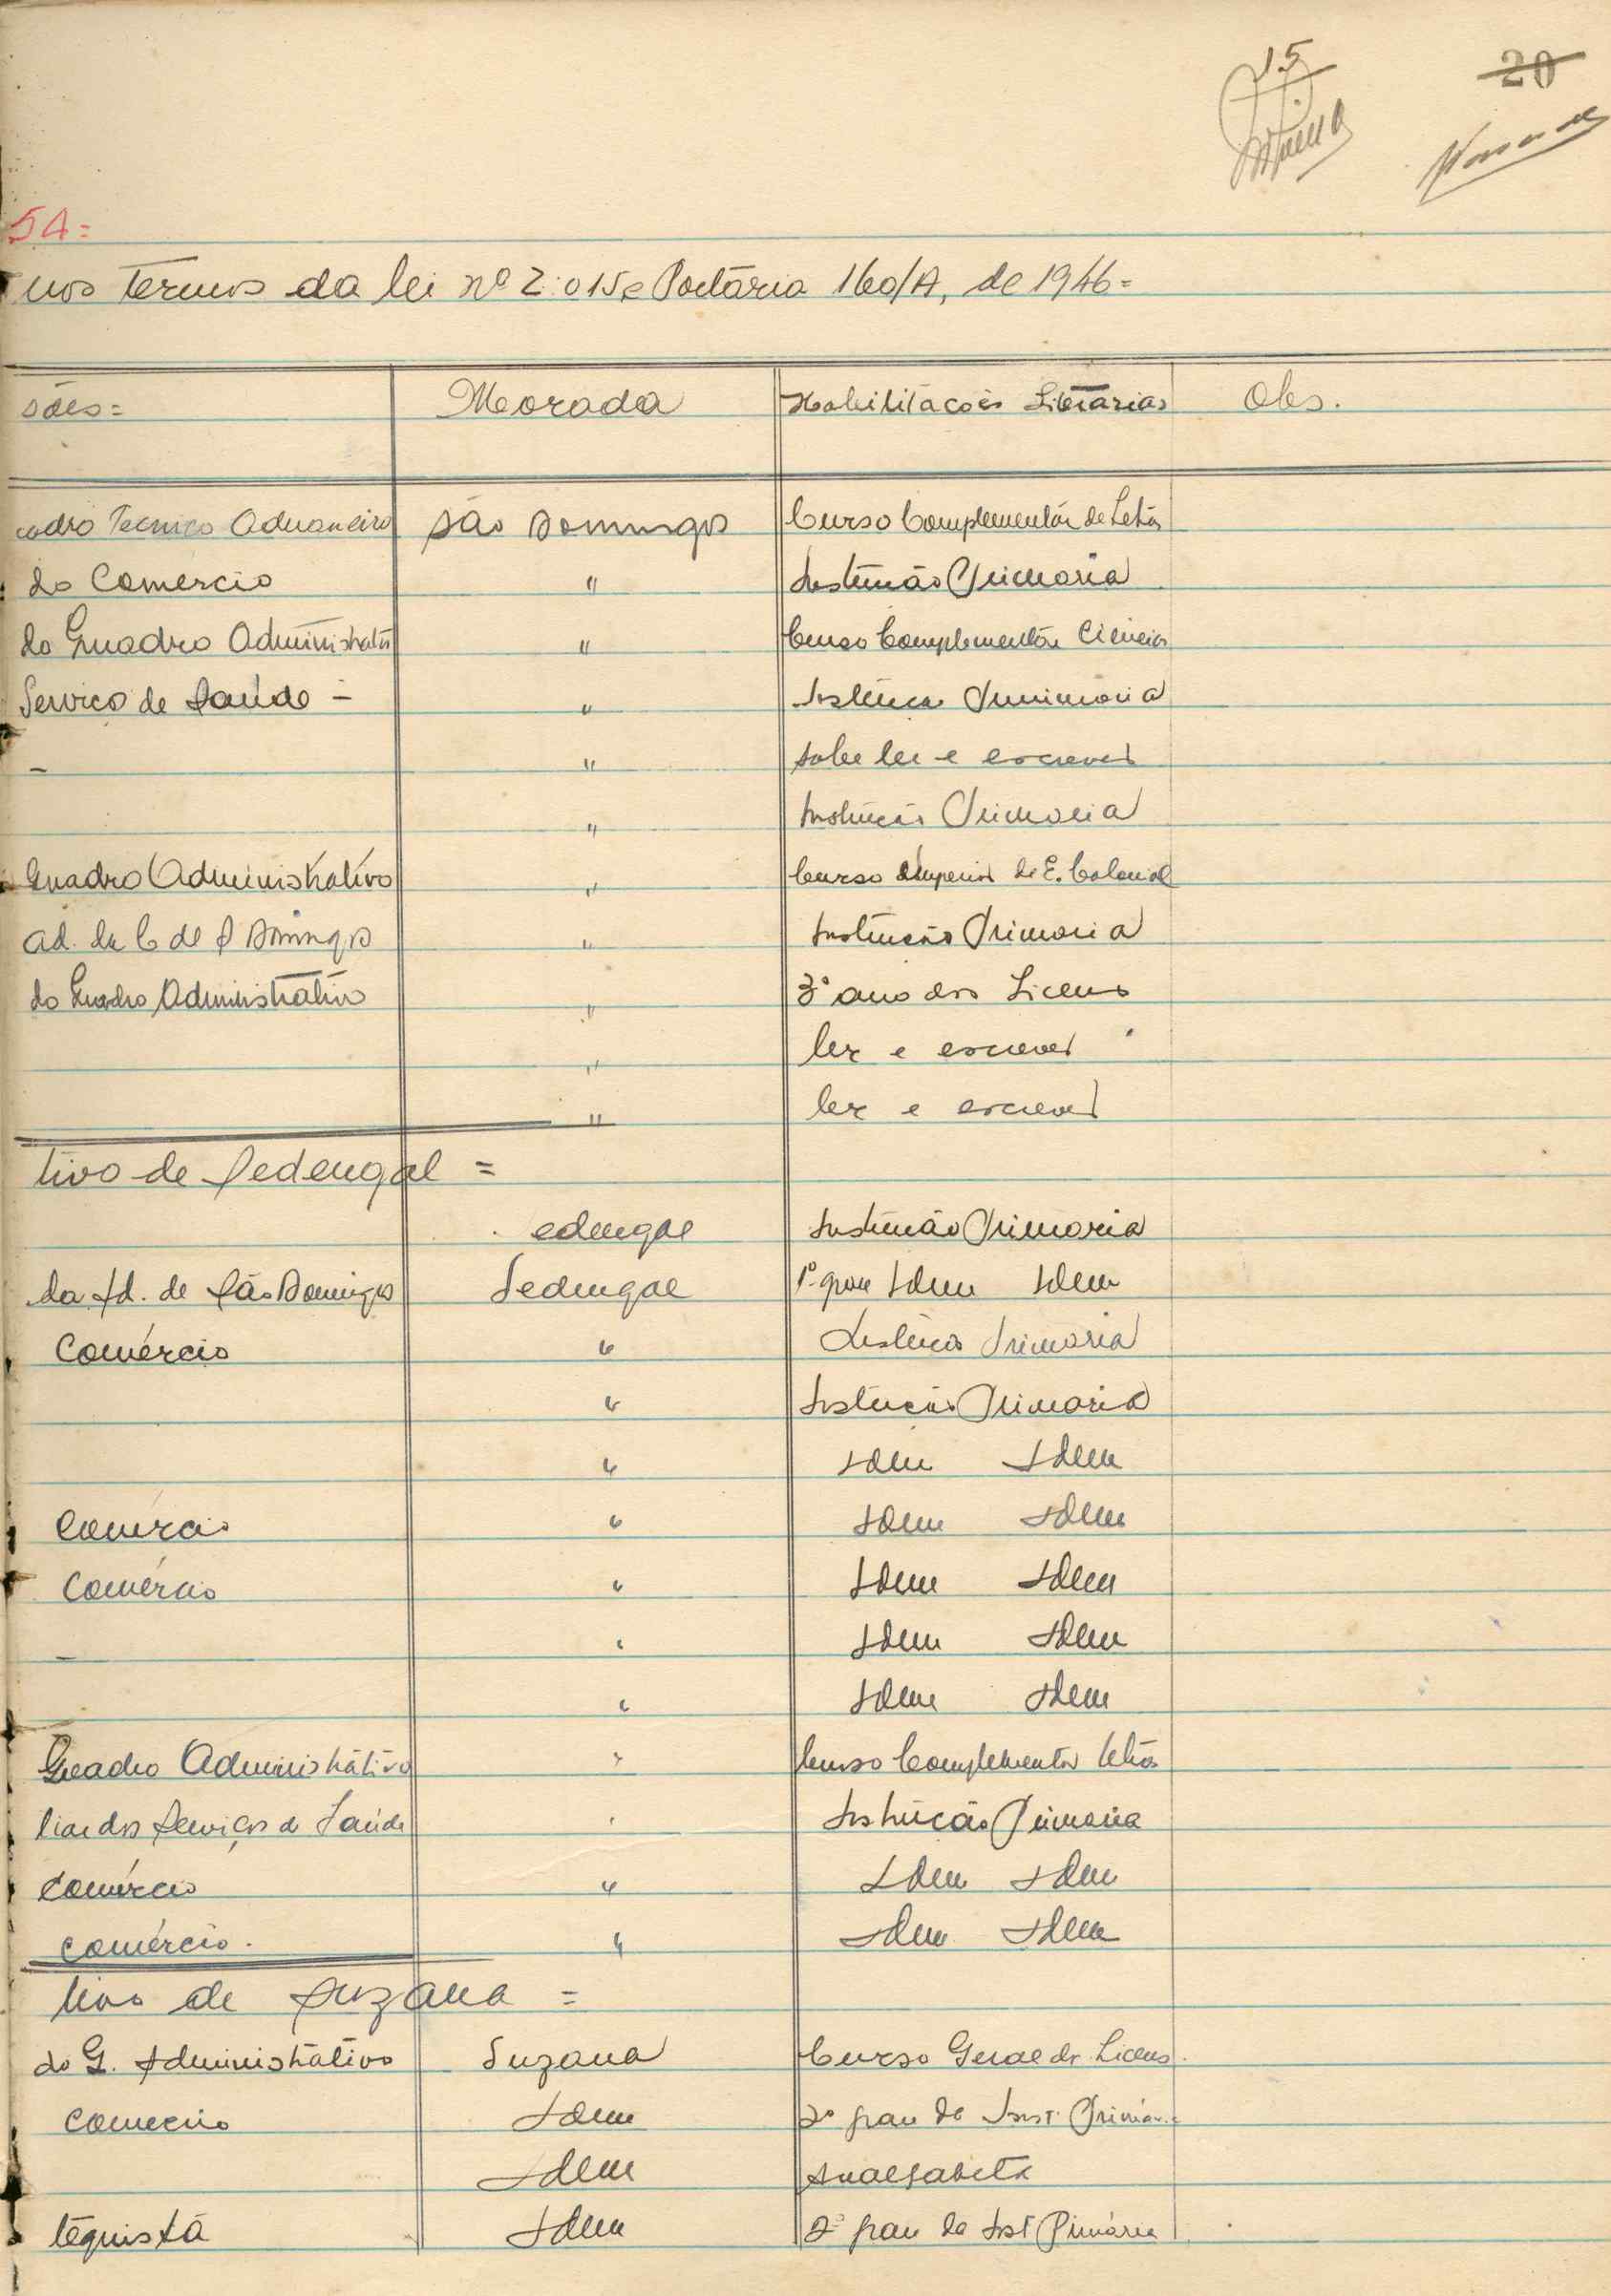 15
20
54=
nos termos da lei nº 2:015 e Portaria 160/A, de 1946=
sões= Morada Habilitacoês Literarias Obs.
adro Tecnico Aduaneiro São Domingos Curso Complementár de Letras
do Comercio " Instrução Primaria
do Quadro Administrativo " Curso Complementár Ciências
Serviço de Saúde - " Instrução Primaria
- " sabe ler e escrever
" Instrução Primaria
Quadro Administrativo " Curso Superior de E. Colonial
ad. da C de S Domingos " Instrução Primaria
do Quadro Administrativo " 3º ano dos Liceus
" ler e escrever
" ler e escrever
tivo de Sedengal =
edengal Instrução Primaria
da Ad. de São Domingos Sedengal 1º grau Idem Idem
Comércio " Instrução Primaria
" Instrução Primaria
" Idem Idem
Comércio " Idem Idem
Comércio " Idem Idem
- " Idem Idem
" Idem Idem
Quadro Administrativo " Curso Complementar Letras
liar dos Serviços de Saúde " Instrução Primaria
Comércio " Idem Idem
comércio. " Idem Idem
tivo de Suzana =
do Q. Administrativo Suzana Curso Geral dos Liceus
Comercio Idem 2º grau da Inst. Primár.
Idem Analfabeta
tequistá Idem 2º grau da Inst Primária